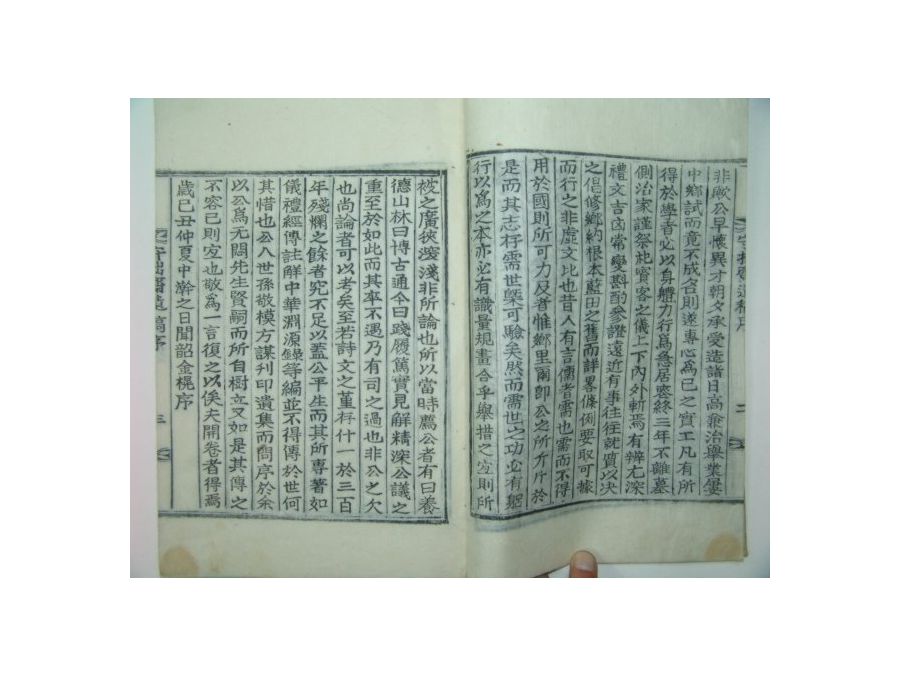 非歟公早懷異才朝夕承受造諸日高兼治擧業屢
中鄕試而竟不成名則遂專心爲已之實工凡有所
得於學者必以身軆力行爲急居喪終三年不離墓
側治家謹祭祀賓客之儀上下內外斬焉有辨尤深
禮文吉凶常變斟酌參證遠近有事往往就質以决
之倡修鄕約根本藍田之舊而詳畧條例要取可據
而行之非虛文比也昔人有言儒者需也需而不得
用於國則所可力及者惟鄕里爾卽公之所斤斤於
是而其志行需世槩可驗矣然而需世之功必有軆
行以爲之本亦必有識量規畫合乎擧措之宜則所
被之廣狹淺非所論也所以當時薦公者有曰養
德山林曰博古通今曰踐履篤實見解精深公議之
重至於如此而其卒不遇乃有司之過也非公之欠
也尙論者可以考矣至若詩文之菫存什一於三百
年殘爛之餘者究不足以蓋公平生而其所專著如
儀禮經傳註解中華淵源錄等編並不得傳於世何
其惜也公八世孫敬模方謀刊印遺集而問序於余
以公爲无悶先生賢嗣而所自樹立又如是其傳之
不容已則宜也敬爲一言復之以俟夫開卷者得焉
歲己丑仲夏中澣之日聞韶金梘序
齋遺稿序
三
遺稿序
二